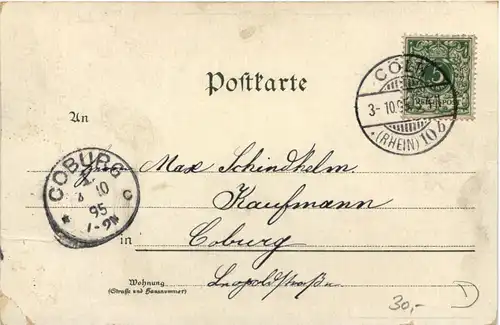 Postkarte
CÖLN
3-10.9
(RHEIN) 10 b
5
REICHSPOST
An
Herrn Max Schindhelm.
Kaufmann
COBURG
1
4 10
95
1-2N
c
in Coburg
Wohnung
(Straße und Hausnummer)
Leopoldstraße
30,-
D